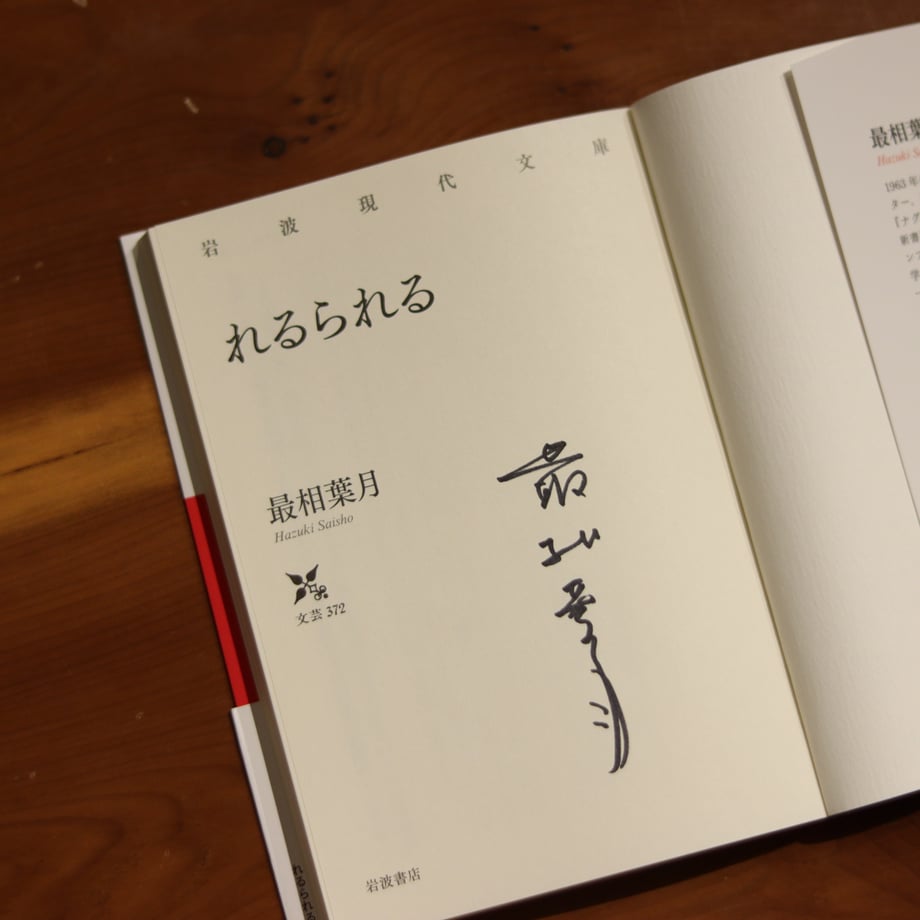 岩波現代文庫
れるられる
最相葉月
Hazuki Saisho
文芸 372
最相葉月
岩波書店
れるられる
最相葉
Hazuki S
1963 年
ター、
『ナグ
新書
ンフ
学